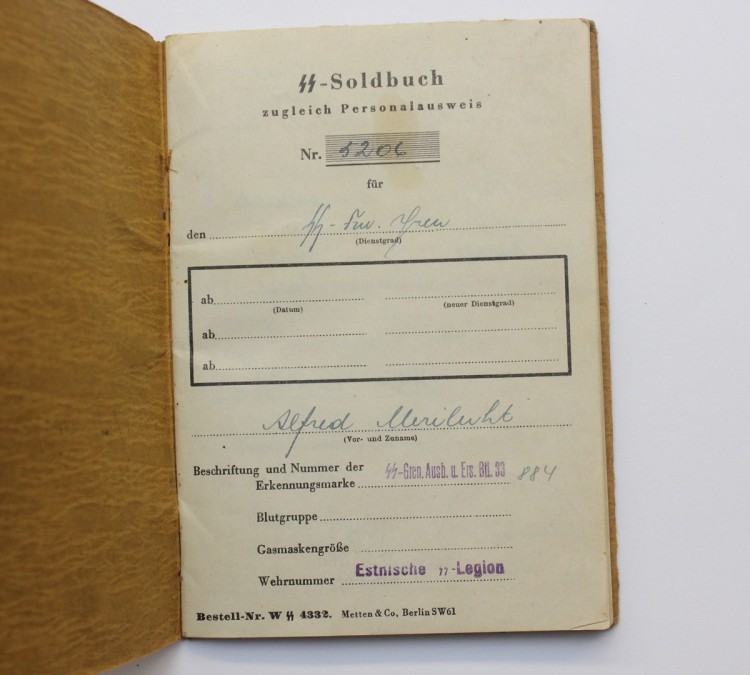 ᛋᛋ-Soldbuch
zugleich Personalausweis
Nr. 5206
für
den ᛋᛋ-Frw. Gren
(Dienstgrad)
ab
(Datum) (neuer Dienstgrad)
ab
ab
Alfred Meriluht
(Vor- und Zuname)
Beschriftung und Nummer der
Erkennungsmarke ᛋᛋ-Gren. Ausb. u. Ers. Btl. 33 884
Blutgruppe
Gasmaskengröße
Wehrnummer Estnische ᛋᛋ-Legion
Bestell-Nr. W ᛋᛋ 4332. Metten & Co., Berlin SW61